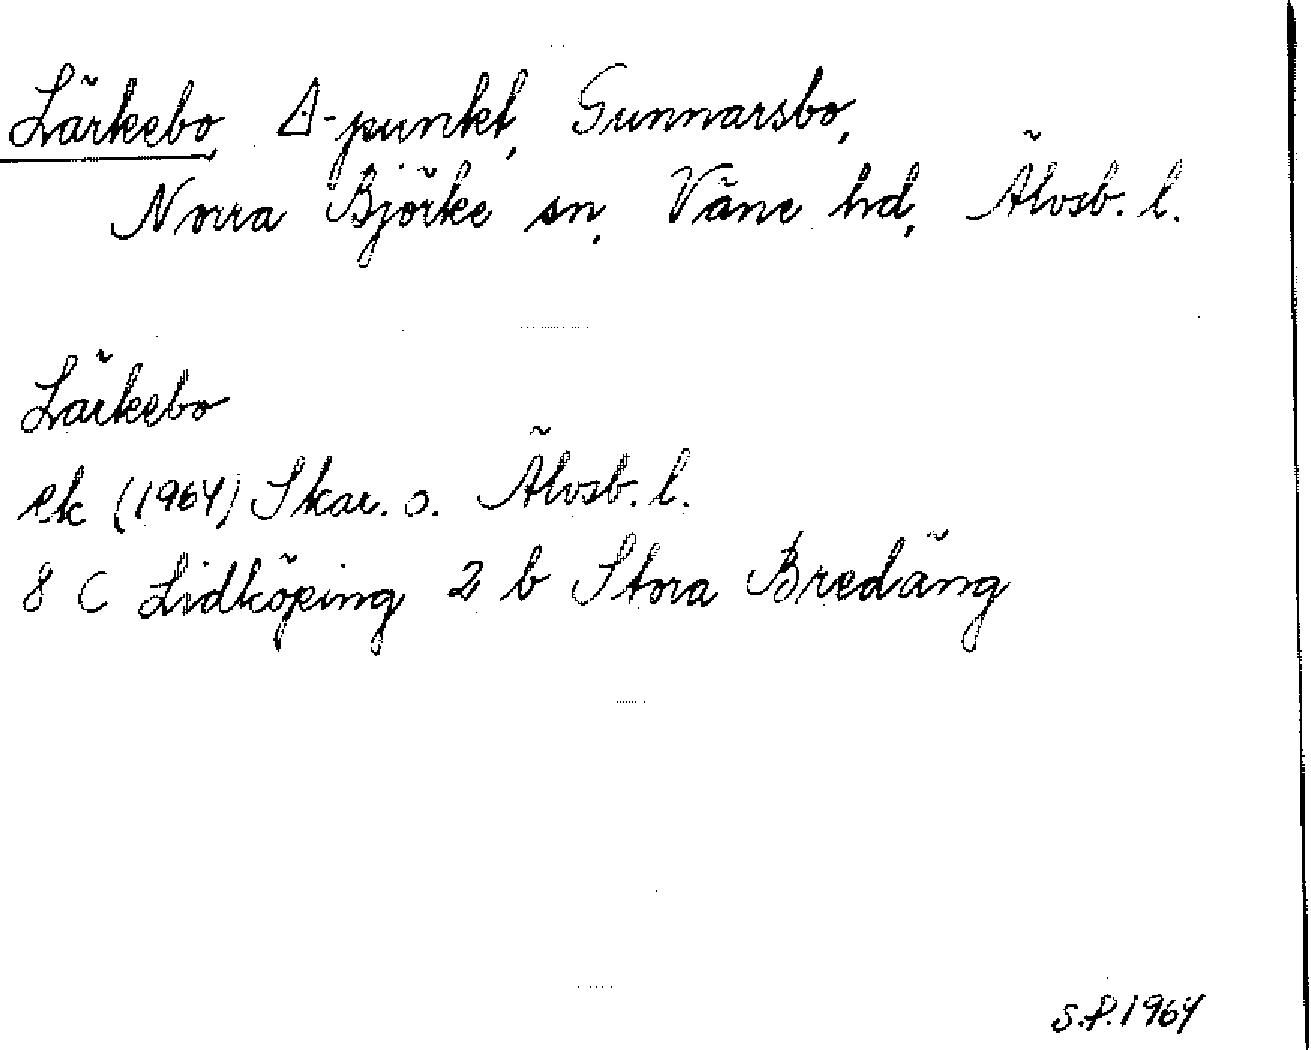 Lärkebo, Δ-punkt, Gunnarsbo,
Norra Björke sn, Väne hd, Älvsb. l.
Lärkebo
ek (1964) Skar. o. Älvsb. l.
8 C Lidköping 2 b Stora Bredäng
S.F. 1964